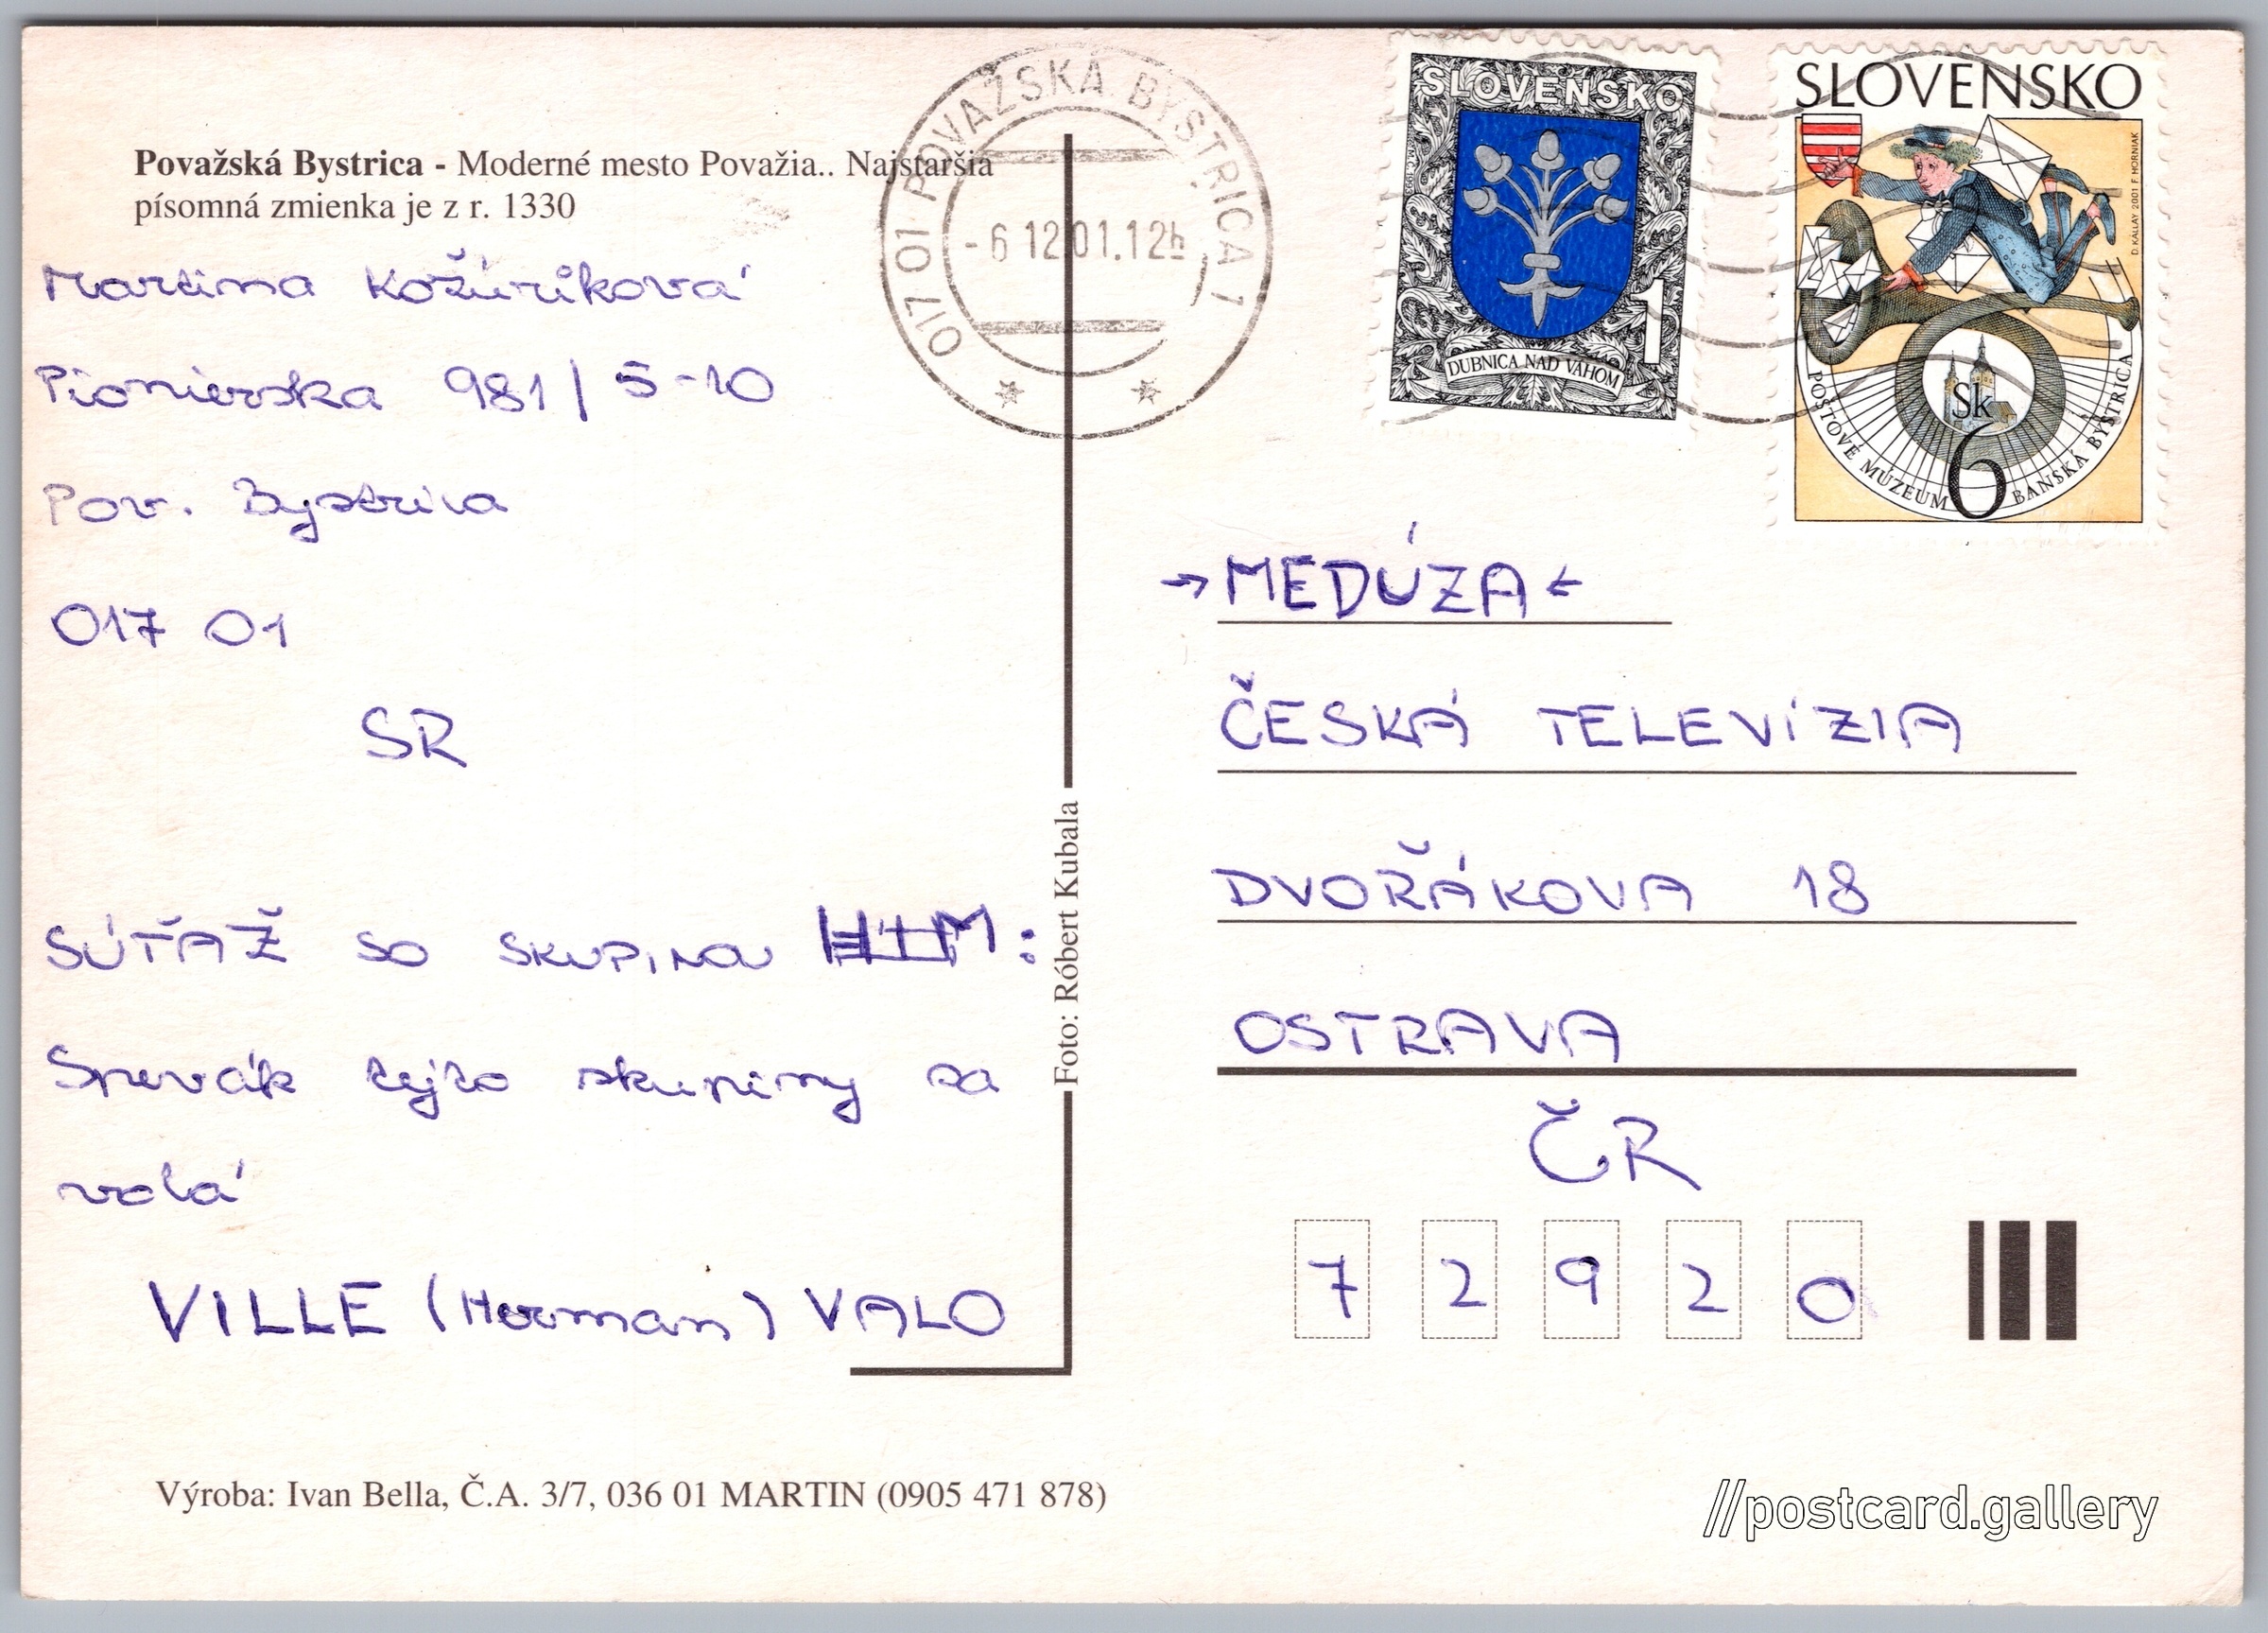 Považská Bystrica - Moderné mesto Považia.. Najstaršia
písomná zmienka je z r. 1330
Martina Kožúriková
Pionierska 981/5-10
Pov. Bystrica
017 01
SR
SÚŤAŽ SO SKUPINOU HIM:
Spevák tejto skupiny sa
volá
VILLE (Herman) VALO
Výroba: Ivan Bella, Č.A. 3/7, 036 01 MARTIN (0905 471 878)
Foto: Róbert Kubala
017 01 POVAŽSKÁ BYSTRICA 1
-6 12 01.12h
SLOVENSKO
1
DUBNICA NAD VÁHOM
SLOVENSKO
D. KÁLLAY 2001 F. HORNIAK
Sk
6
POŠTOVÉ MÚZEUM BANSKÁ BYSTRICA
→MEDÚZA←
ČESKÁ TELEVÍZIA
DVOŘÁKOVA 18
OSTRAVA
ČR
7 2 9 2 0
//postcard.gallery